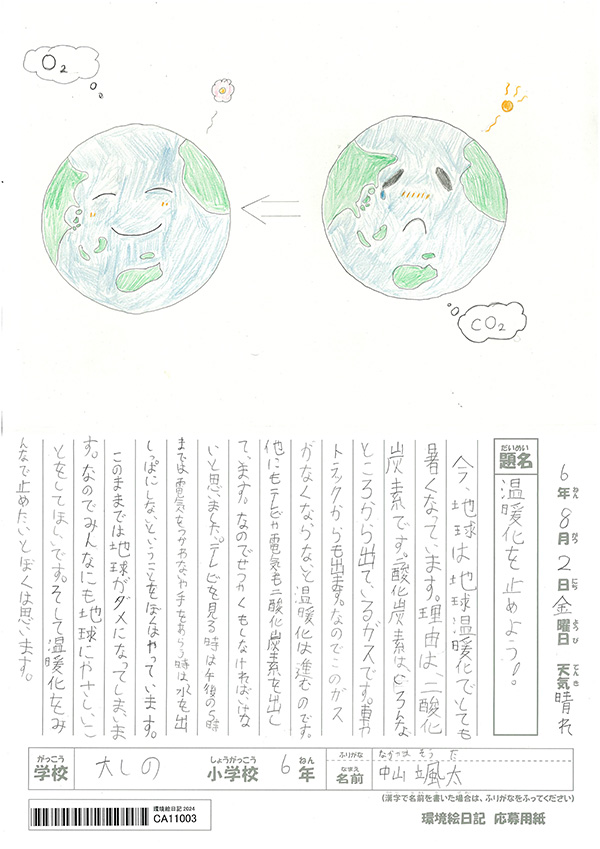 O2
CO2
6年 8月 2日 金曜日 天気 晴れ
ねん がつ にち ようび てんき
だいめい
題名
温暖化を止めよう!
今、地球は地球温暖化でとても
暑くなっています。理由は、二酸化
炭素です。二酸化炭素は、いろんな
ところから出ているガスです。車や
トラックからも出ます。なのでこのガス
がなくならないと温暖化は進むのです。
他にもテレビや電気も二酸化炭素を出し
ています。なのでせつやくもしなければいけな
いと思いました。テレビを見る時は午後の
までは電気をつかわないや手をあらう時は水を出
しっぱにしないということをぼくはやっています。
このままでは地球がダメになってしまいま
す。なのでみんなにも地球にやさしいこ
とをしてほしいです。そして温暖化をみ
んなで止めたいとぼくは思います。
がっこう
学校
大しの
しょうがっこう
小学校
6年
ねん
ふりがな
なかやま そうた
なまえ
名前
中山 颯太
(漢字で名前を書いた場合は、ふりがなをふってください)
環境絵日記2024
CA11003
環境絵日記 応募用紙